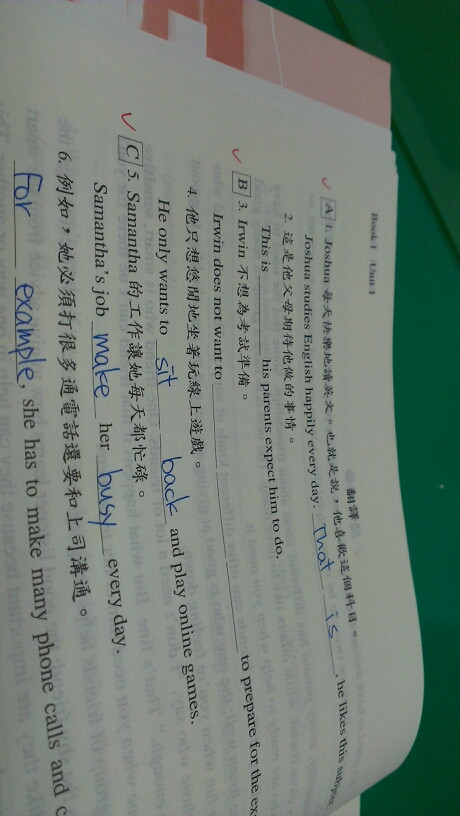 Book 1 Unit 1
翻譯
A 1. Joshua 每天快樂地讀英文。也就是說，他喜歡這個科目。
Joshua studies English happily every day. That is, he likes this
2. 這是他父母期待他做的事情。
This is ______ his parents expect him to do.
B 3. Irwin 不想為考試準備。
Irwin does not want to ______ ______ to prepare for the
4. 他只想悠閒地坐著玩線上遊戲。
He only wants to sit back and play online games.
C 5. Samantha 的工作讓她每天都忙碌。
Samantha's job make her busy every day.
6. 例如，她必須打很多通電話還要和上司溝通。
For example, she has to make many phone calls and